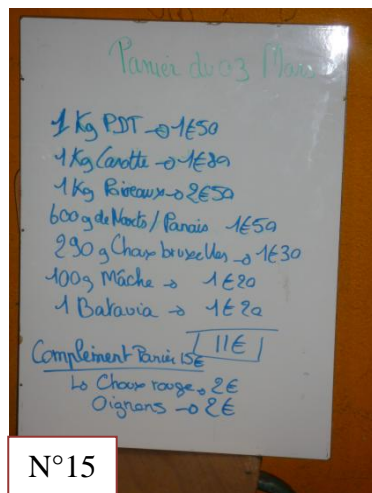 Panier du 03 Mars
1 Kg PDT → 1€50
1 Kg Carotte → 1€80
1 Kg Poireaux → 2€50
600g de Navets / Panais 1€50
290g Choux bruxelles → 1€30
100g Mâche → 1€20
1 Batavia → 1€20
11€
Complément Panier 15€
↳ Choux rouge → 2€
Oignons → 2€
N°15